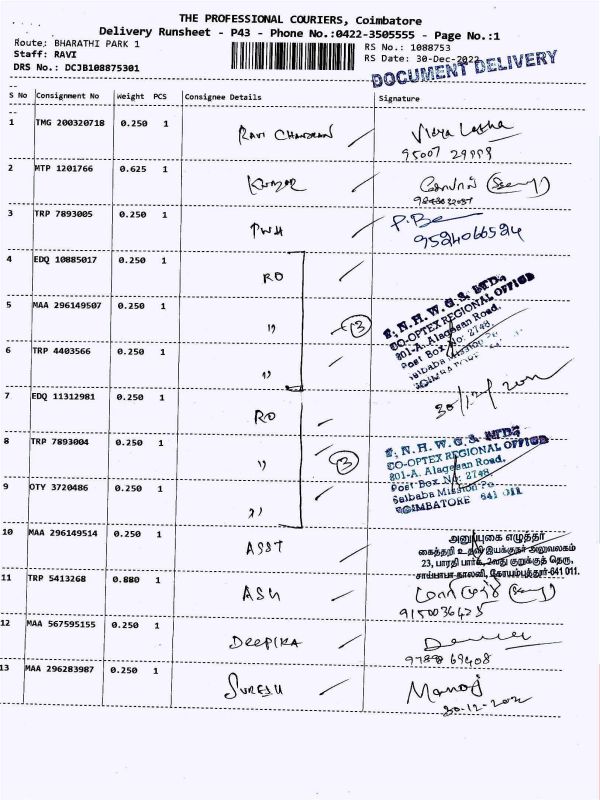 THE PROFESSIONAL COURIERS, Coimbatore
Delivery Runsheet - P43 - Phone No.:0422-3505555 - Page No.:1
Route; BHARATHI PARK 1
RS No.: 1088753
Staff: RAVI
RS Date: 30-Dec-2022
DRS No.: DCJB108875301
DOCUMENT DELIVERY
S No Consignment No Weight PCS Consignee Details Signature
1 TMG 200320718 0.250 1 RAVI CHANDRAN Vidya Latha
95007 29999
2 MTP 1201766 0.625 1 KUMAR
3 TRP 7893005 0.250 1 PWH P.Be
9524066524
4 EDQ 10885017 0.250 1 RO
5 MAA 296149507 0.250 1 " 3
T. N. H. W. C. S. LTD.
CO-OPTEX REGIONAL OFFICE
201-A, Alagesan Road,
Post Box No. 2748,
Saibaba Mission Po
6 TRP 4403566 0.250 1 "
7 EDQ 11312981 0.250 1 RO
8 TRP 7893004 0.250 1 " 3
T. N. H. W. C. S. LTD.
CO-OPTEX REGIONAL OFFICE
201-A, Alagesan Road,
Post Box No. 2748,
Saibaba Mission Po
COIMBATORE 641 011
9 OTY 3720486 0.250 1 "
10 MAA 296149514 0.250 1 ASST
கைத்தறி உதவி இயக்குநர் அலுவலகம்
23, பாரதி பார்க், 2வது குறுக்குத் தெரு,
சாய்பாபா காலனி, கோயம்புத்தூர்-641 011.
11 TRP 5413268 0.880 1
9150036423
12 MAA 567595155 0.250 1 DEEPIKA
9788 69408
13 MAA 296283987 0.250 1 SURESH Manoj
30-12-2022